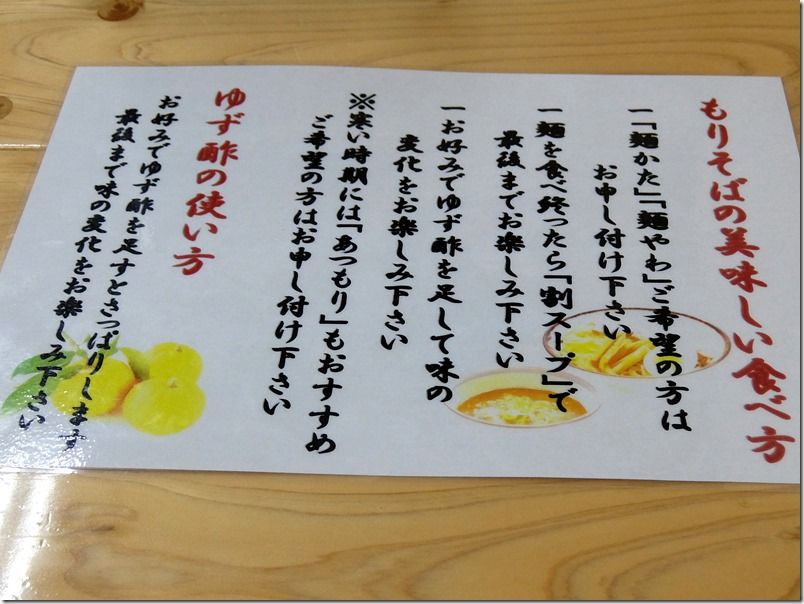 もりそばの美味しい食べ方
一「麺かた」「麺やわ」ご希望の方は
お申し付け下さい
一麺を食べ終ったら「割スープ」で
最後までお楽しみ下さい
一お好みでゆず酢を足して味の
変化をお楽しみ下さい
※寒い時期には「あつもり」もおすすめ
ご希望の方はお申し付け下さい
ゆず酢の使い方
お好みでゆず酢を足すとさっぱりします
最後まで味の変化をお楽しみ下さい